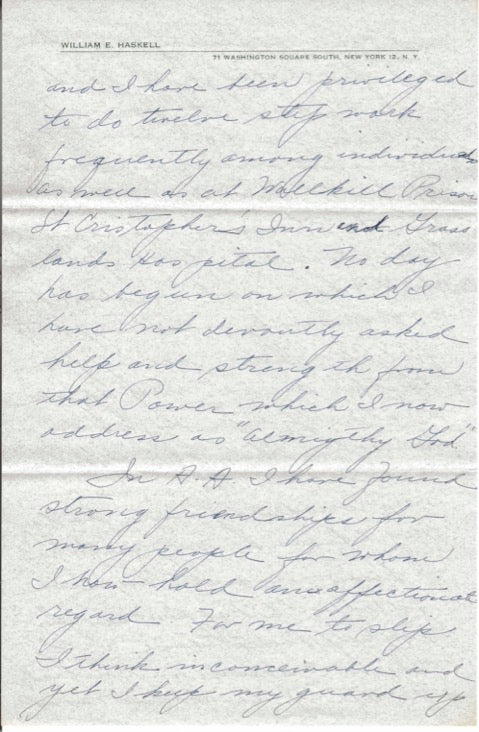 WILLIAM E. HASKELL
71 WASHINGTON SQUARE SOUTH, NEW YORK 12, N. Y.
and I have been privileged
to do twelve step work
frequently among individuals
as well as at Wallkill Prison
St Cristopher's Inn and Grass
lands Hospital. No day
has begun on which I
have not devoutly asked
help and strength from
that Power which I now
address as "Almigthy God"
In A.A I have found
strong friendships for
many people for whom
I now hold an affectionate
regard For me to slip
I think inconceivable and
yet I keep my guard up